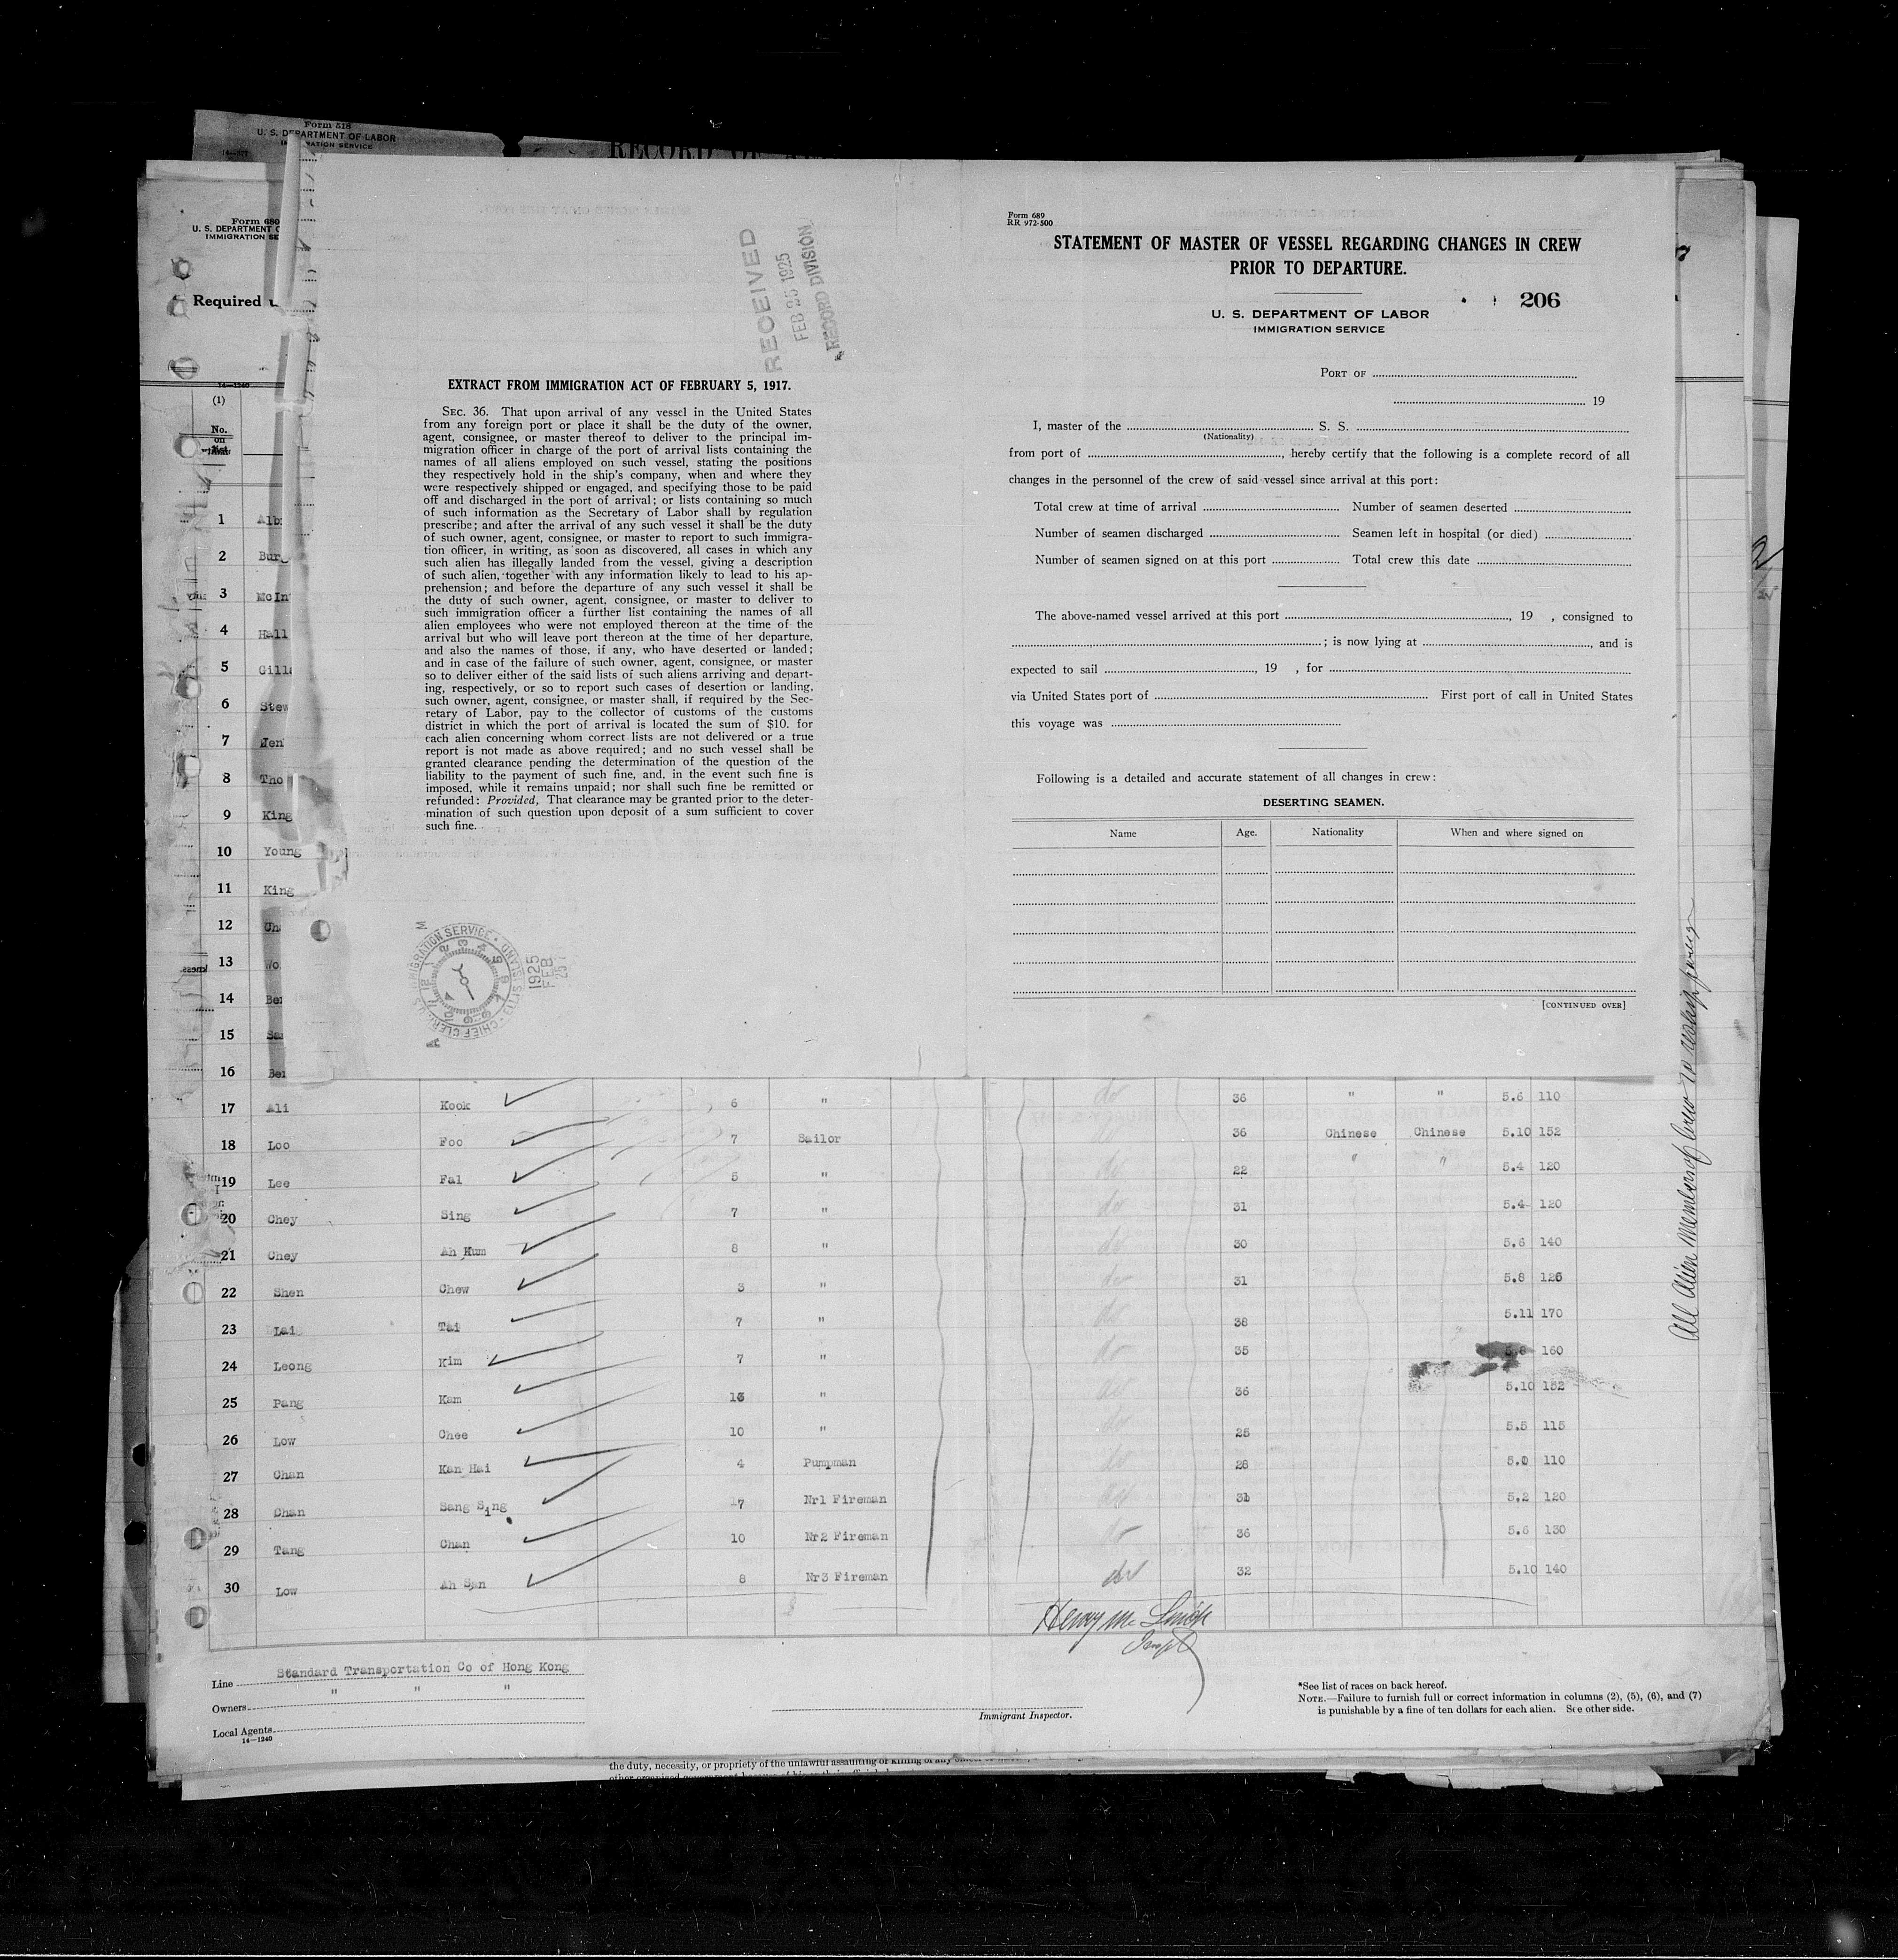 Form 518
U. S. DEPARTMENT OF LABOR
14—577
RECORD OF
Form 680
U. S. DEPARTMENT O
IMMIGRATION SE
Required u
14—1240
(1)
No.
on
List
RECEIVED
FEB 25 1925
RECORD DIVISION
EXTRACT FROM IMMIGRATION ACT OF FEBRUARY 5, 1917.
SEC. 36. That upon arrival of any vessel in the United States
from any foreign port or place it shall be the duty of the owner,
agent, consignee, or master thereof to deliver to the principal im-
migration officer in charge of the port of arrival lists containing the
names of all aliens employed on such vessel, stating the positions
they respectively hold in the ship's company, when and where they
were respectively shipped or engaged, and specifying those to be paid
off and discharged in the port of arrival; or lists containing so much
of such information as the Secretary of Labor shall by regulation
prescribe; and after the arrival of any such vessel it shall be the duty
of such owner, agent, consignee, or master to report to such immigra-
tion officer, in writing, as soon as discovered, all cases in which any
such alien has illegally landed from the vessel, giving a description
of such alien, together with any information likely to lead to his ap-
prehension; and before the departure of any such vessel it shall be
the duty of such owner, agent, consignee, or master to deliver to
such immigration officer a further list containing the names of all
alien employees who were not employed thereon at the time of the
arrival but who will leave port thereon at the time of her departure,
and also the names of those, if any, who have deserted or landed;
and in case of the failure of such owner, agent, consignee, or master
so to deliver either of the said lists of such aliens arriving and depart-
ing, respectively, or so to report such cases of desertion or landing,
such owner, agent, consignee, or master shall, if required by the Sec-
retary of Labor, pay to the collector of customs of the customs
district in which the port of arrival is located the sum of $10. for
each alien concerning whom correct lists are not delivered or a true
report is not made as above required; and no such vessel shall be
granted clearance pending the determination of the question of the
liability to the payment of such fine, and, in the event such fine is
imposed, while it remains unpaid; nor shall such fine be remitted or
refunded: Provided, That clearance may be granted prior to the deter-
mination of such question upon deposit of a sum sufficient to cover
such fine.
U.S. IMMIGRATION SERVICE · ELLIS ISLAND · CHIEF CLERK
1925
FEB
25
Form 689
RR 972-500
STATEMENT OF MASTER OF VESSEL REGARDING CHANGES IN CREW
PRIOR TO DEPARTURE.
206
U. S. DEPARTMENT OF LABOR
IMMIGRATION SERVICE
PORT OF
19
I, master of the S. S.
(Nationality)
from port of , hereby certify that the following is a complete record of all
changes in the personnel of the crew of said vessel since arrival at this port:
Total crew at time of arrival Number of seamen deserted
Number of seamen discharged Seamen left in hospital (or died)
Number of seamen signed on at this port Total crew this date
The above-named vessel arrived at this port , 19 , consigned to
; is now lying at , and is
expected to sail , 19 , for
via United States port of First port of call in United States
this voyage was
Following is a detailed and accurate statement of all changes in crew:
DESERTING SEAMEN.
Name Age. Nationality When and where signed on
[CONTINUED OVER]
1 Alb
2 Bur
3 McIn
4 Hall
5 Gill
6 Stew
7 Jen
8 Tho
9 King
10 Young
11 King
12 Ch
13 Wo
14 Be
15 Sa
16 Be
17 Ali Kook 6 " do 36 " " 5.6 110
18 Loo Foo 7 Sailor do 36 Chinese Chinese 5.10 152
19 Lee Fal 5 " do 22 " " 5.4 120
20 Chey Sing 7 " do 31 5.4 120
21 Chey Ah Kum 8 " do 30 5.6 140
22 Shen Chew 3 " do 31 5.8 126
23 Lai Tai 7 " do 38 5.11 170
24 Leong Kim 7 " do 35 160
25 Pang Kam 13 " do 36 5.10 152
26 Low Chee 10 " do 25 5.5 115
27 Chan Kan Hai 4 Pumpman do 28 110
28 Chan Sang Sing 17 Nr1 Fireman do 31 5.2 120
29 Tang Chan 10 Nr2 Fireman do 36 5.6 130
30 Low Ah San 8 Nr3 Fireman do 32 5.10 140
All Alien Members of Crew to reship foreign
Line Standard Transportation Co of Hong Kong
Owners " " "
Local Agents
14—1240
Immigrant Inspector.
*See list of races on back hereof.
NOTE.—Failure to furnish full or correct information in columns (2), (5), (6), and (7)
is punishable by a fine of ten dollars for each alien. See other side.
the duty, necessity, or propriety of the unlawful assaulting or killing of any